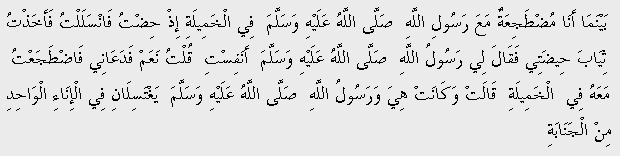 بَيْنَمَا أَنَا مُضْطَجِعَةٌ مَعَ رَسُولِ اللَّهِ صَلَّى اللَّهُ عَلَيْهِ وَسَلَّمَ فِي الْخَمِيلَةِ إِذْ حِضْتُ فَانْسَلَلْتُ فَأَخَذْتُ
ثِيَابَ حِيضَتِي فَقَالَ لِي رَسُولُ اللَّهِ صَلَّى اللَّهُ عَلَيْهِ وَسَلَّمَ أَنَفِسْتِ قُلْتُ نَعَمْ فَدَعَانِي فَاضْطَجَعْتُ
مَعَهُ فِي الْخَمِيلَةِ قَالَتْ وَكَانَتْ هِيَ وَرَسُولُ اللَّهِ صَلَّى اللَّهُ عَلَيْهِ وَسَلَّمَ يَغْتَسِلَانِ فِي الْإِنَاءِ الْوَاحِدِ
مِنْ الْجَنَابَةِ